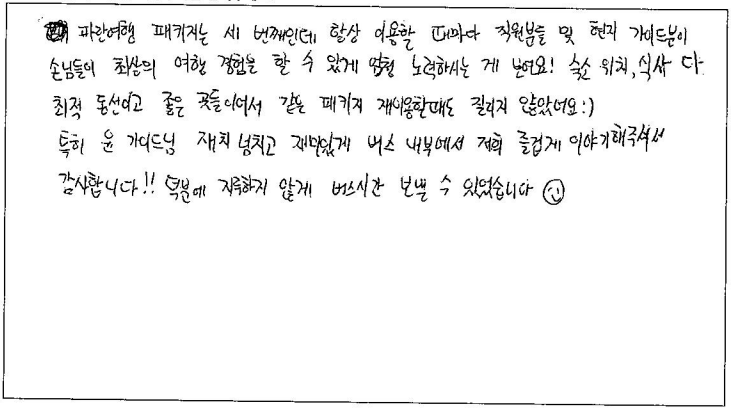 파란여행 패키지는 세 번째인데 항상 이용할 때마다 직원분들 및 현지 가이드분이
손님들이 최상의 여행 경험을 할 수 있게 엄청 노력하시는 게 보여요! 숙소 위치, 식사 다
최적 동선이고 좋은 곳들이여서 같은 패키지 재이용할때도 질리지 않았어요:)
특히 윤 가이드님 재치 넘치고 재미있게 버스 내부에서 저희 즐겁게 이야기해주셔서
감사합니다!! 덕분에 지루하지 않게 버스시간 보낼 수 있었습니다 ☺